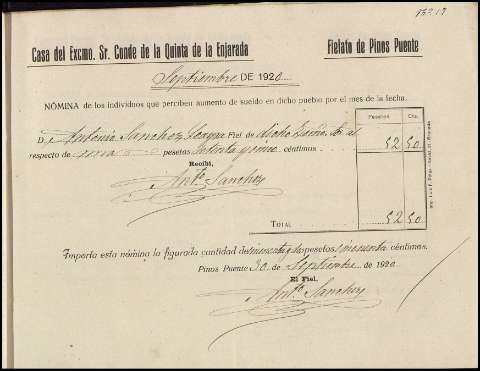 Casa del Excmo. Sr. Conde de la Quinta de la Enjarada
Fielato de Pinos Puente
Septiembre DE 1920
NÓMINA de los individuos que perciben aumento de sueldo en dicho pueblo por el mes de la fecha.
Pesetas Cts.
D. Antonio Sanchez Fiel de dicho al 52 50
respecto de una pesetas setenta y cinco céntimos
Recibí,
Antº Sanchez
TOTAL 52 50
Importa esta nómina la figurada cantidad de cincuenta y dos pesetas cincuenta céntimos.
Pinos Puente 30 de Septiembre de 1920
El Fiel,
Antº Sanchez